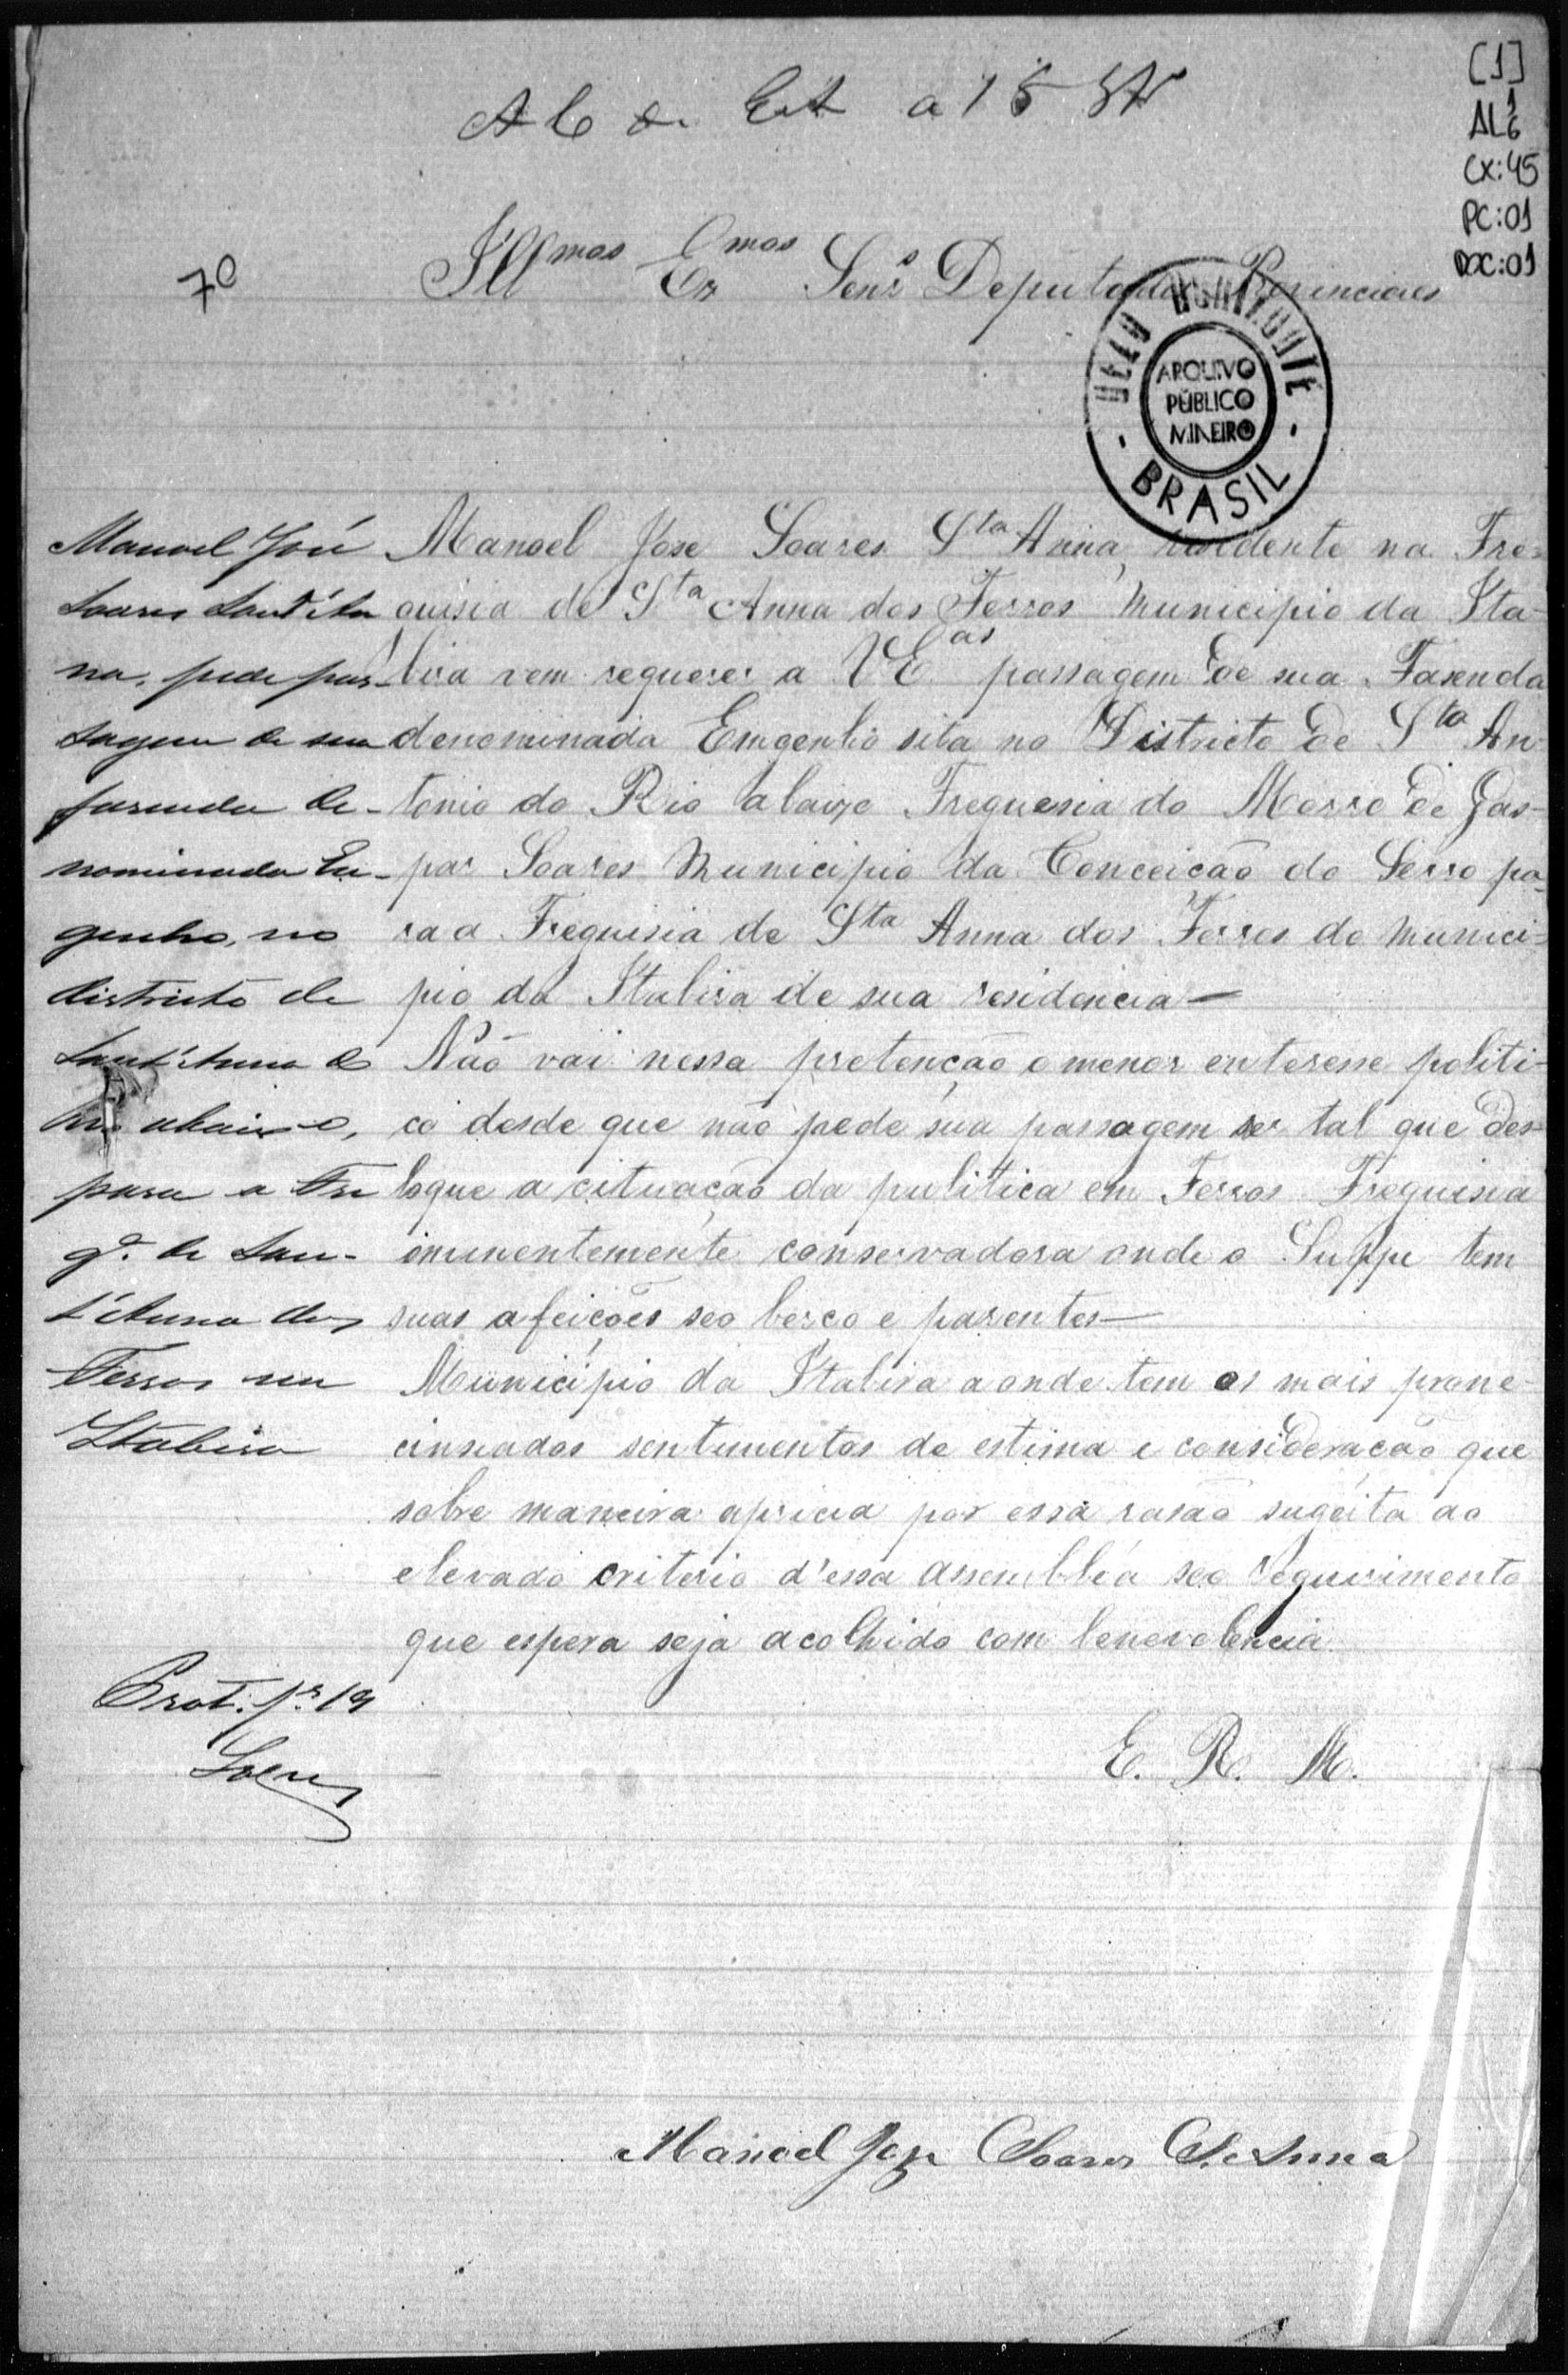 [1]
AL 1/6
CX:45
PC:01
DOC:01
a 15
70
Illmos Exmos Senrs Deputados Provinciaes
BELLO HORIZONTE
ARQUIVO
PÚBLICO
MINEIRO
BRASIL
Manoel José
Soares Sant'An
na, pede pas-
sagem de sua
fazenda de-
nominada En-
genho, no
districto de
Sant'Anna do
Rio abaixo,
para a Fre
gª. de San-
t'Anna dos
Ferros em
Itabira
Manoel Jose Soares Sta Anna, residente na Fre=
quisia de Sta Anna dos Ferros Municipio da Ita-
bira vem requerer a VEas passagem de sua Fasenda
denominada Emgenho sita no Districto de Sta An-
tonio do Rio abaixo Freguesia do Morro de Gas-
par Soares Municipio da Conceição do Serro pa-
ra a Freguisia de Sta Anna dos Ferros do Munici=
pio da Itabira de sua residencia—
Não vai nessa pretenção o menor enteresse politi-
co desde que não pode sua passagem ser tal que des=
loque a cituação da pulitica em Ferros Freguisia
iminentemente conservadora onde o Suppe tem
suas afeições seo berço e parentes—
Municipio da Itabira aonde tem os mais prone-
cinsiados sentimentos de estima e consideração que
sobre maneira apricia por essa rasão sugeita ao
elevado criterio d'essa assembléa seo requirimento
que espera seja acolhido com benevolencia.
E. R. M.
Prot. 19
Manoel Joze Soares S.ta Anna